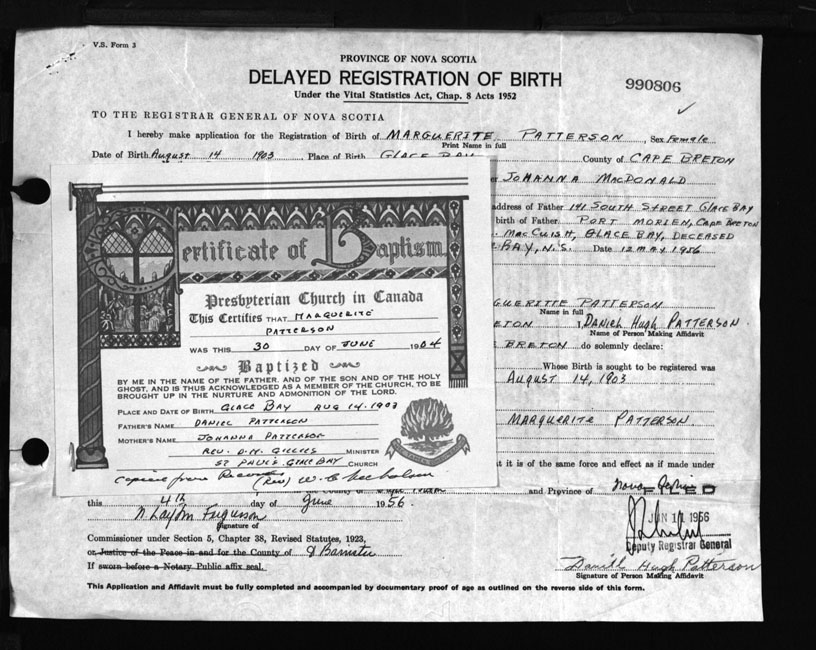 V.S. Form 3
PROVINCE OF NOVA SCOTIA
DELAYED REGISTRATION OF BIRTH
990806
Under the Vital Statistics Act, Chap. 8 Acts 1952
TO THE REGISTRAR GENERAL OF NOVA SCOTIA
I hereby make application for the Registration of Birth of MARGUERITE PATTERSON, Sex Female
Print Name in full
Date of Birth August 14 1903 Place of Birth GLACE BAY County of CAPE BRETON
JOHANNA MACDONALD
address of Father 141 SOUTH STREET GLACE BAY
birth of Father PORT MORIEN, CAPE BRETON
MACCUISH, GLACE BAY, DECEASED
BAY, N.S. Date 12 MAY 1956
Certificate of Baptism
Presbyterian Church in Canada
This Certifies THAT MARGUERITE
PATTERSON
WAS THIS 30 DAY OF JUNE 1904
Baptized
BY ME IN THE NAME OF THE FATHER, AND OF THE SON AND OF THE HOLY
GHOST, AND IS THUS ACKNOWLEDGED AS A MEMBER OF THE CHURCH, TO BE
BROUGHT UP IN THE NURTURE AND ADMONITION OF THE LORD.
PLACE AND DATE OF BIRTH GLACE BAY AUG 14. 1903
FATHER'S NAME DANIEL PATTERSON
MOTHER'S NAME JOHANNA PATTERSON
REV. D.M. GILLIES MINISTER
ST PAUL'S. GLACE BAY CHURCH
Copied from Records (Rev) W. C. Nicholson
GUERITTE PATTERSON
Name in full
ETON, I, DANIEL HUGH PATTERSON
Name of Person Making Affidavit
BRETON do solemnly declare:
Whose Birth is sought to be registered was
AUGUST 14, 1903
MARGUERITE PATTERSON
t it is of the same force and effect as if made under
and Province of Nova Scotia
this 4th day of June 1956.
FILED
JUN 11 1956
Deputy Registrar General
N. Layton Fergusson
Signature of
Commissioner under Section 5, Chapter 38, Revised Statutes, 1923,
or Justice of the Peace in and for the County of A Barrister
If sworn before a Notary Public affix seal.
Daniel Hugh Patterson
Signature of Person Making Affidavit
This Application and Affidavit must be fully completed and accompanied by documentary proof of age as outlined on the reverse side of this form.